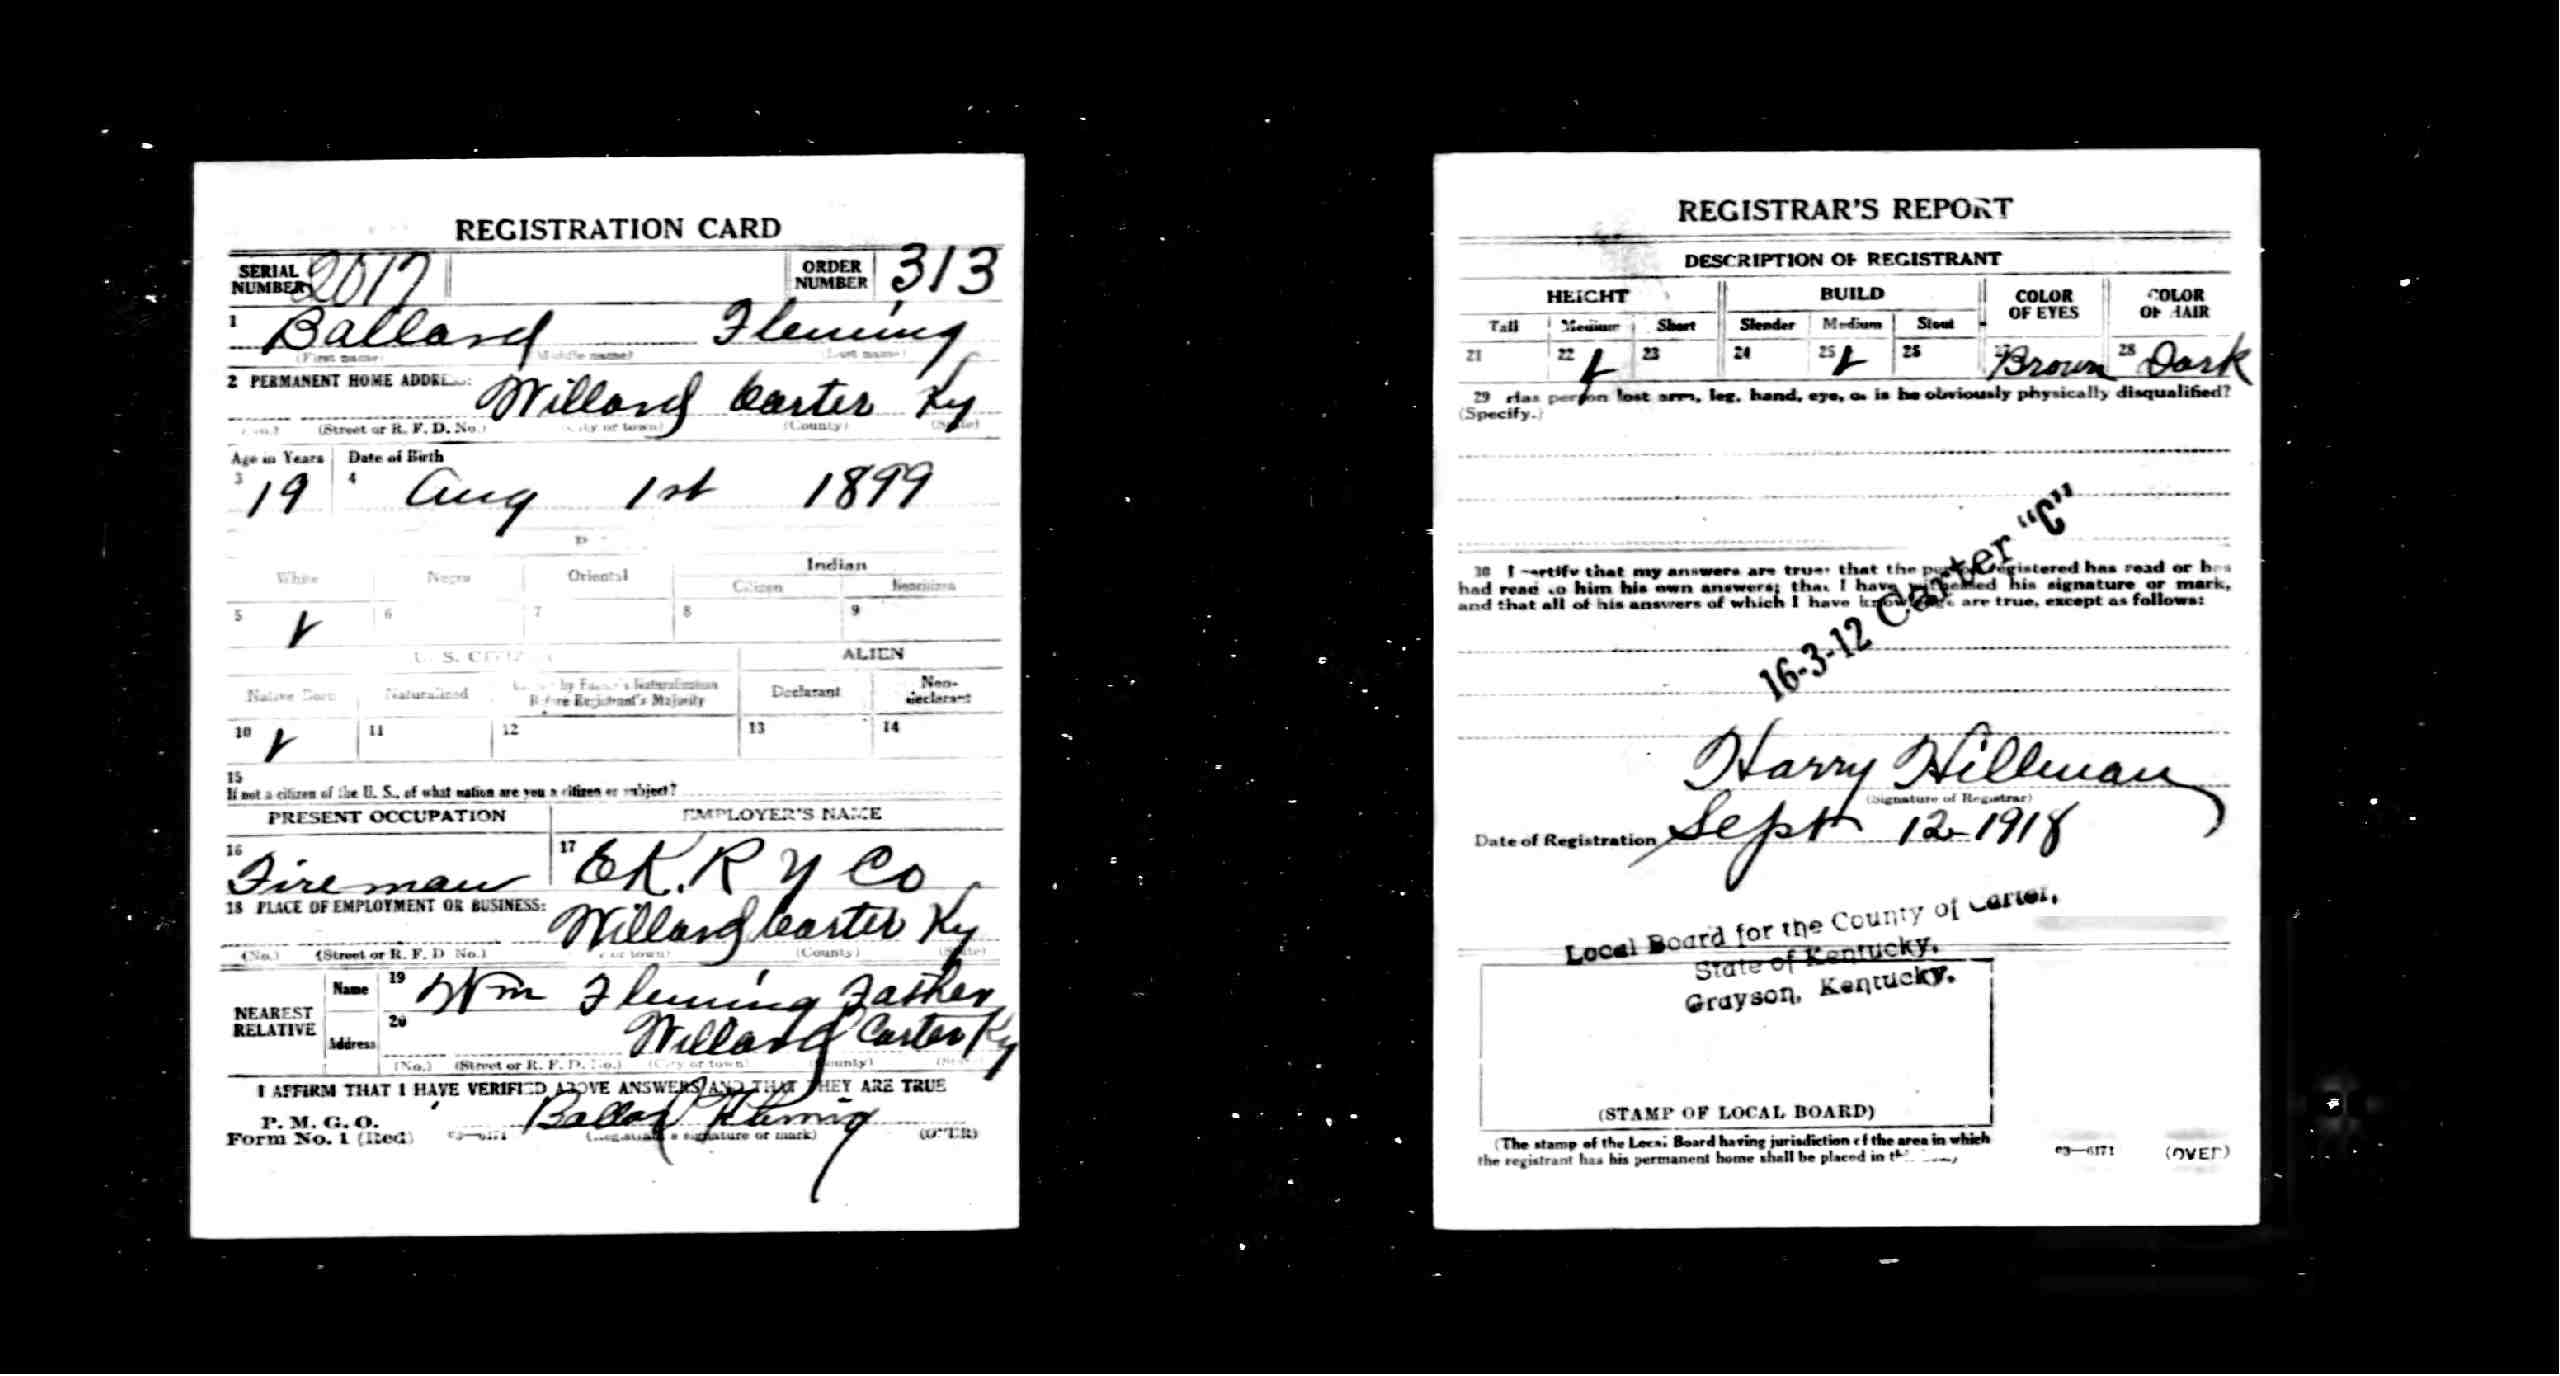 REGISTRATION CARD
SERIAL NUMBER 2017 ORDER NUMBER 313
1 Ballard Fleming
(First name) (Middle name) (Last name)
2 PERMANENT HOME ADDRESS: Willard Carter Ky
(No.) (Street or R. F. D. No.) (City or town) (County) (State)
Age in Years Date of Birth
3 19 4 Aug 1st 1899
White Negro Oriental Indian
Citizen Noncitizen
5 6 7 8 9
U. S. CITIZEN ALIEN
Native Born Naturalized Citizen by Father's Naturalization Before Registrant's Majority Declarant Non-declarant
10 11 12 13 14
15
If not a citizen of the U. S., of what nation are you a citizen or subject?
PRESENT OCCUPATION EMPLOYER'S NAME
16 Fireman 17 E K. R Y Co
18 PLACE OF EMPLOYMENT OR BUSINESS: Willard Carter Ky
(No.) (Street or R. F. D. No.) (City or town) (County) (State)
NEAREST RELATIVE Name 19 Wm Fleming Father
Address 20 Willard Carter Ky
(No.) (Street or R. F. D. No.) (City or town) (County) (State)
I AFFIRM THAT I HAVE VERIFIED ABOVE ANSWERS AND THAT THEY ARE TRUE
P. M. G. O.
Form No. 1 (Red) 03—6171 Ballard Fleming (Registrant's signature or mark) (OVER)
REGISTRAR'S REPORT
DESCRIPTION OF REGISTRANT
HEIGHT BUILD COLOR OF EYES COLOR OF HAIR
Tall Medium Short Slender Medium Stout
21 22 23 24 25 26 27 Brown 28 Dark
29 Has person lost arm, leg, hand, eye, or is he obviously physically disqualified?
(Specify.)
30 I certify that my answers are true; that the person registered has read or has
had read to him his own answers; that I have witnessed his signature or mark,
and that all of his answers of which I have knowledge are true, except as follows:
16-3-12 Carter "C"
Harry Hillman
(Signature of Registrar)
Date of Registration Sept 12-1918
Local Board for the County of Carter,
State of Kentucky.
Grayson, Kentucky.
(STAMP OF LOCAL BOARD)
(The stamp of the Local Board having jurisdiction of the area in which
the registrant has his permanent home shall be placed in this
03—6171 (OVER)